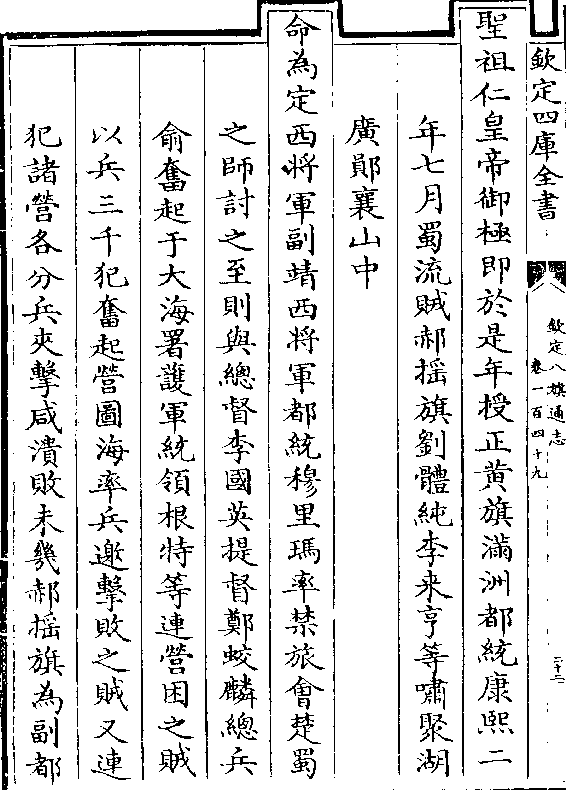 欽定四庫全書
欽定八旗通志
卷一百四十九
二十二
聖祖仁皇帝御極即於是年授正黃旗滿洲都統康熙二
年七月蜀流賊郝搖旗劉體純李來亨等嘯聚湖
廣鄖襄山中
命為定西將軍副靖西將軍都統穆里瑪率禁旅會楚蜀
之師討之至則與總督李國英提督鄭蛟麟總兵
俞奮起于大海署護軍統領根特等連營困之賊
以兵三千犯奮起營圖海率兵邀擊敗之賊又連
犯諸營各分兵夾擊咸潰敗未幾郝搖旗為副都